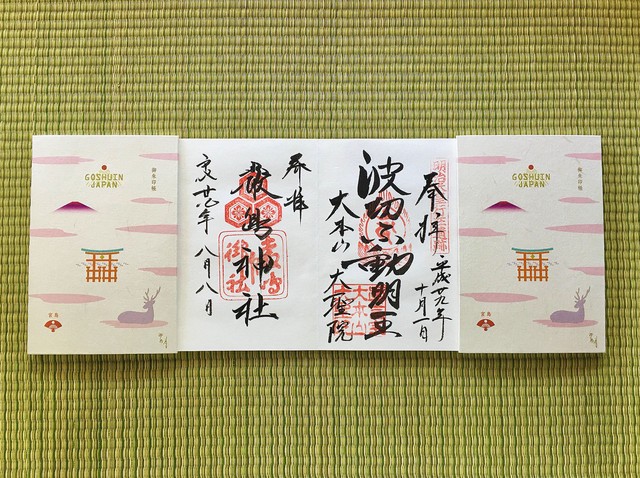 御朱印帳
GOSHUIN
JAPAN
宮島
奉拝
平成廿九年
十月一日
波切不動明王
大本山 大聖院
奉拝
嚴島神社
八月八日
御朱印帳
GOSHUIN
JAPAN
宮島